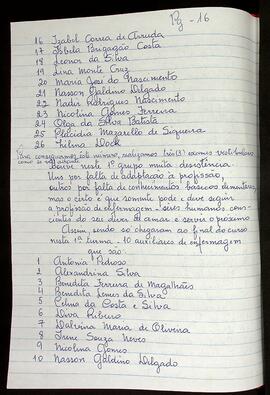 Pg - 16
16 Izabel Correa de Arruda
17 Isbela Bragação Costa
18 Leonor da Silva
19 Lina Monte Cruz
20 Maria José do Nascimento
21 Nasson Galdino Delgado
22 Nadir Rodrigues Nascimento
23 Nicolina Gomes Ferreira
24 Olga da Silva Batista
25 Placidia Mazarello de Siqueira
26 Hilma Dock
Para conseguirmos este número, realizamos três(3) exames vestibulares
Houve neste 1º grupo muita desistência.
Uns por falta de adaptação à profissão,
outros por falta de conhecimentos básicos elementares,
mas o certo é que somente pode e deve seguir
a profissão de enfermagem - seres humanos cons-
cientes do seu dever de amar e servir o próximo
Assim, sendo só chegaram ao final do curso
nesta 1ª turma - 10 auxiliares de enfermagem
que são:
1 Antonia Pedroso
2 Alexandrina Silva
3 Benedita Ferreira de Magalhães
4 Benedita Lemes da Silva
5 Celma da Costa e Silva
6 Diva Ribeiro
7 Dalvina Maria de Oliveira
8 Irene Souza Neves
9 Nicolina Gomes
10 Nasson Galdino Delgado